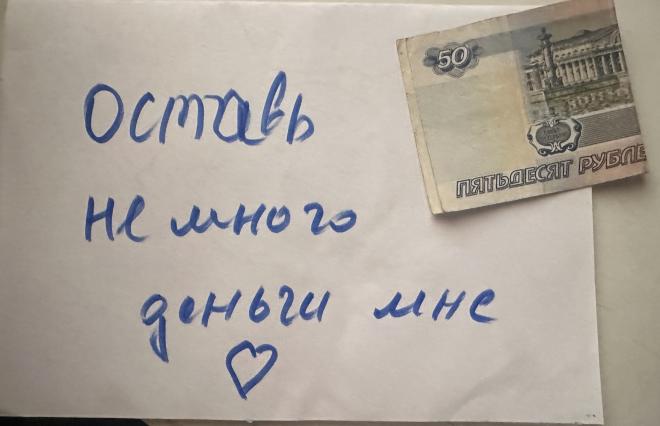 Оставь
не много
деньги мне
50
ПЯТЬДЕСЯТ РУБЛЕ